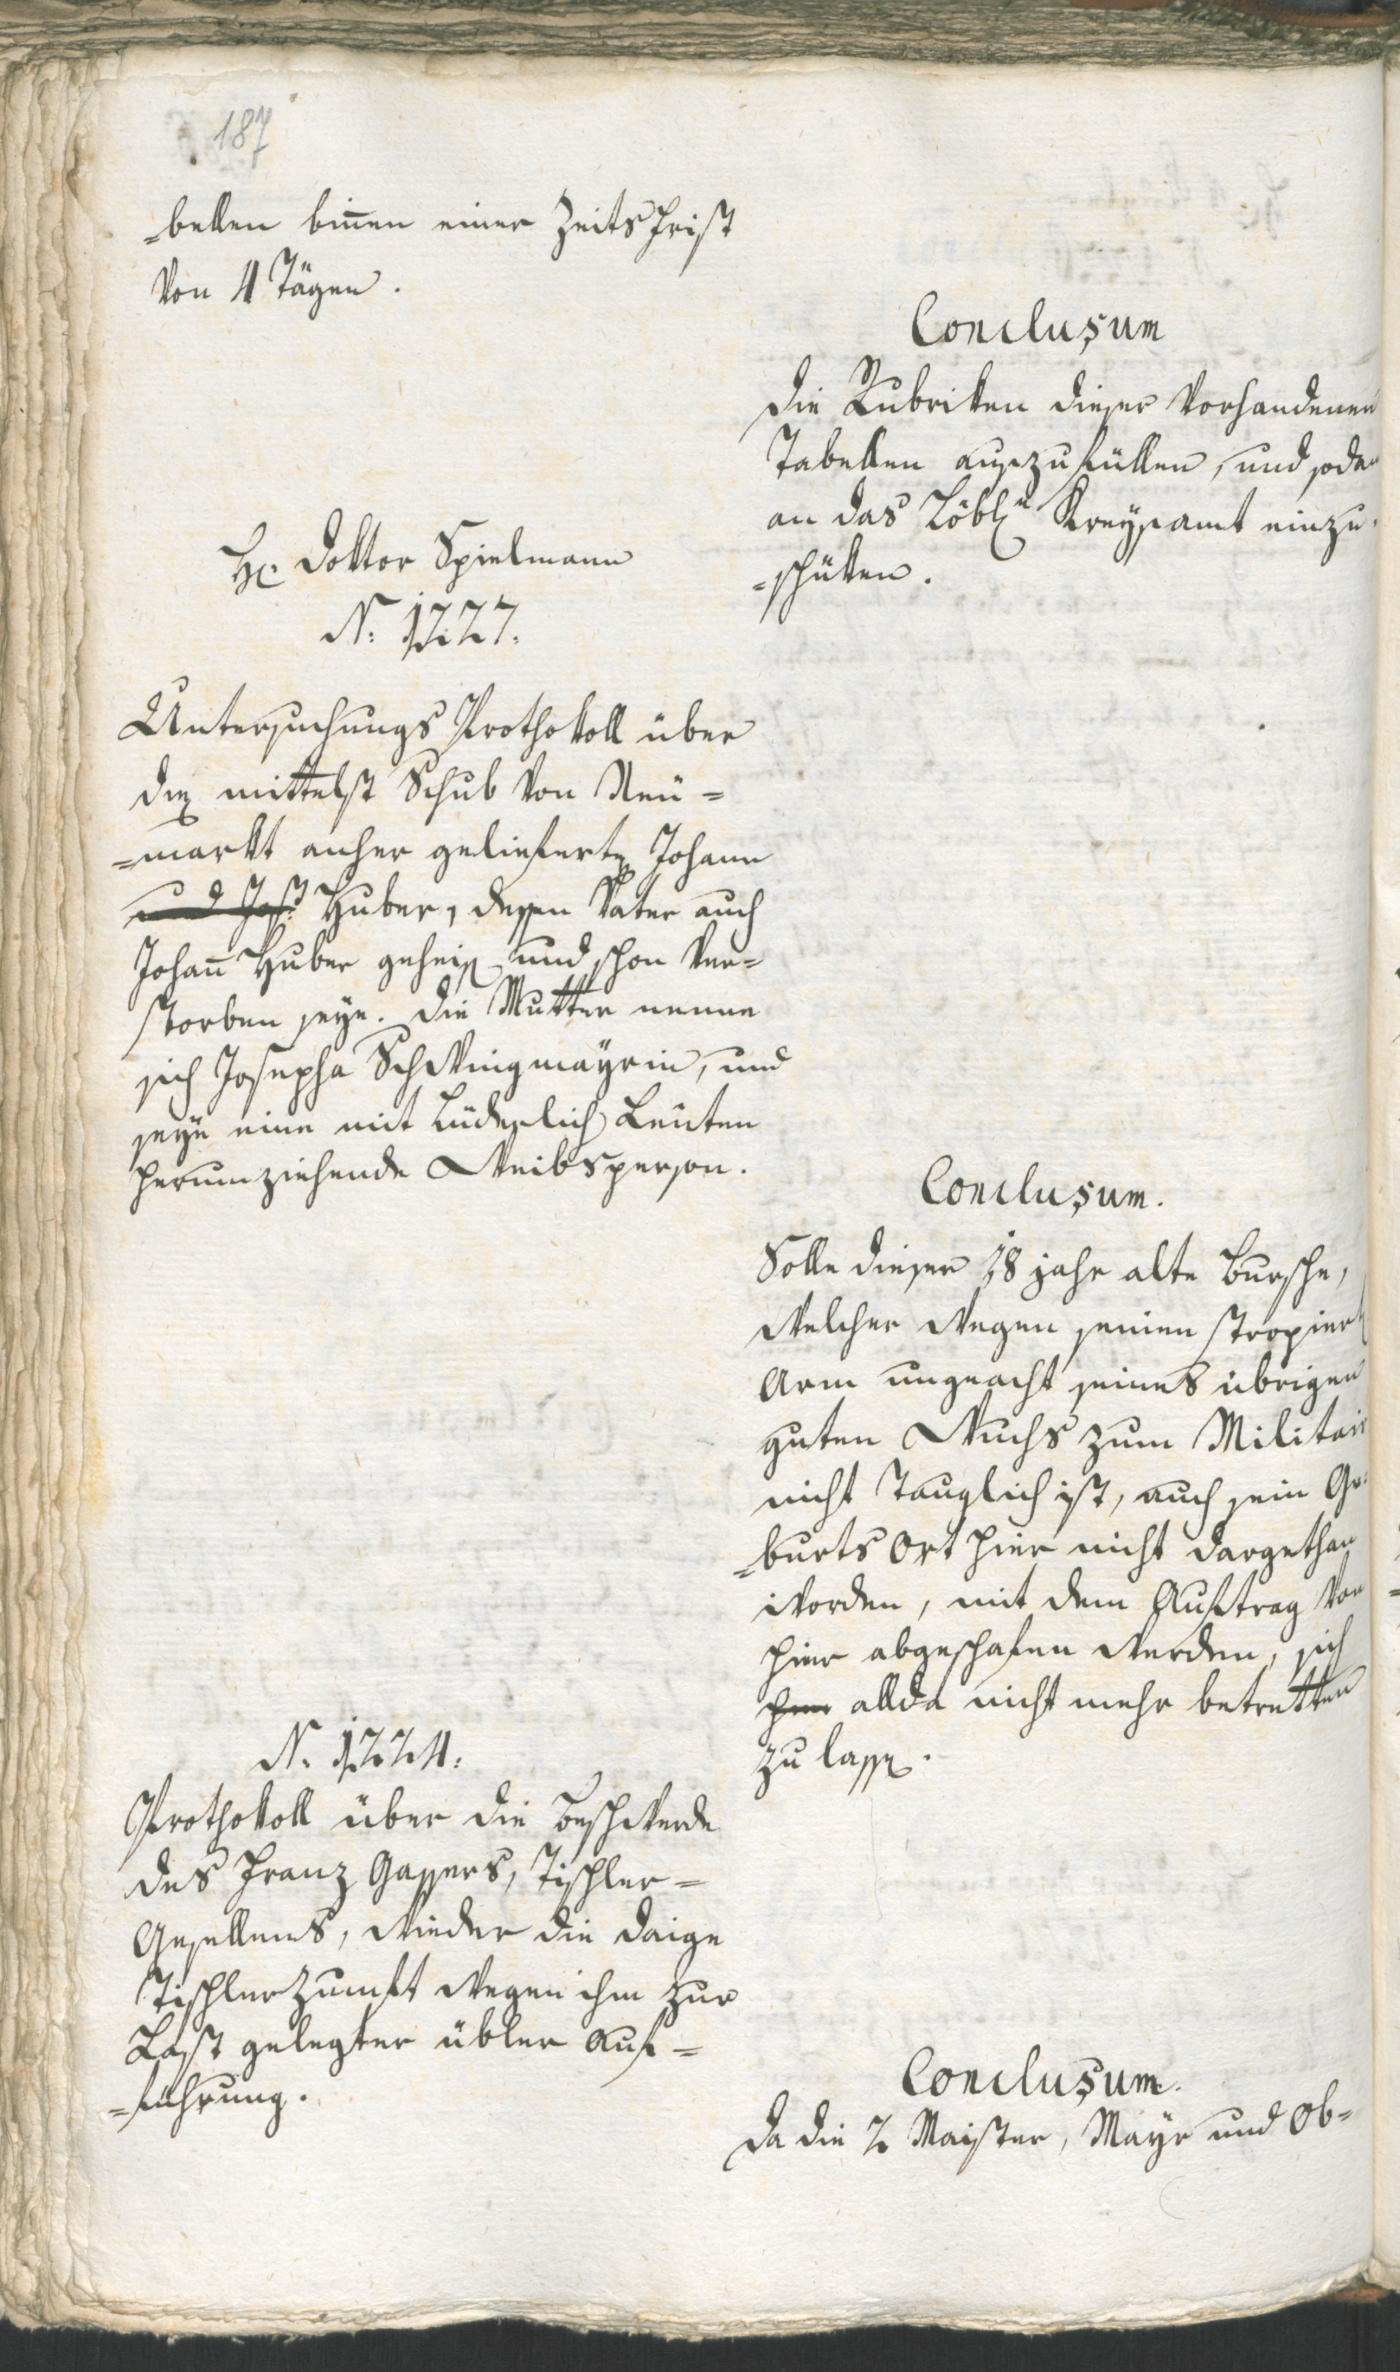 187
=bellen binnen einer Zeitsfrist
von 4 Tägen.
Conclusum
Die Rubriken dieser vorhandenen
Tabellen auszufüllen, und sodan
an das Löbl. Kreysamt einzu=
=schüken.
H: Doktor Spielmann
N: 1227.
Untersuchungs Prothokoll über
den mittelst Schub von Neu=
=markt anher gelieferten Johann
und Jos: Huber, dessen Vater auch
Johañ Huber geheissen und schon ver=
storben seye. Die Mutter nenne
sich Josepha Schwingmayrin, und
seye eine mit Lüderlichen Leuten
herumziehende Weibsperson.
Conclusum.
Solle dieser 18 jahr alte Bursche,
welcher wegen seinen stropierten
Arm ungeacht seines übrigen
guten Wuchs zum Militair
nicht Tauglich ist, auch sein Ge=
=burts Ort hier nicht dargethan
worden, mit dem Auftrag von
hier abgeschafen werden, sich
hier allda nicht mehr betretten
zu lassen.
N. 1224.
Prothokoll über die Beschwerde
des Franz Gassers, Tischler=
Gesellens, wieder die daige
Tischlerzunft wegen ihm zur
Last gelegter übler Auf=
=führung.
Conclusum.
Da die 2 Maister, Mayr und Ob=